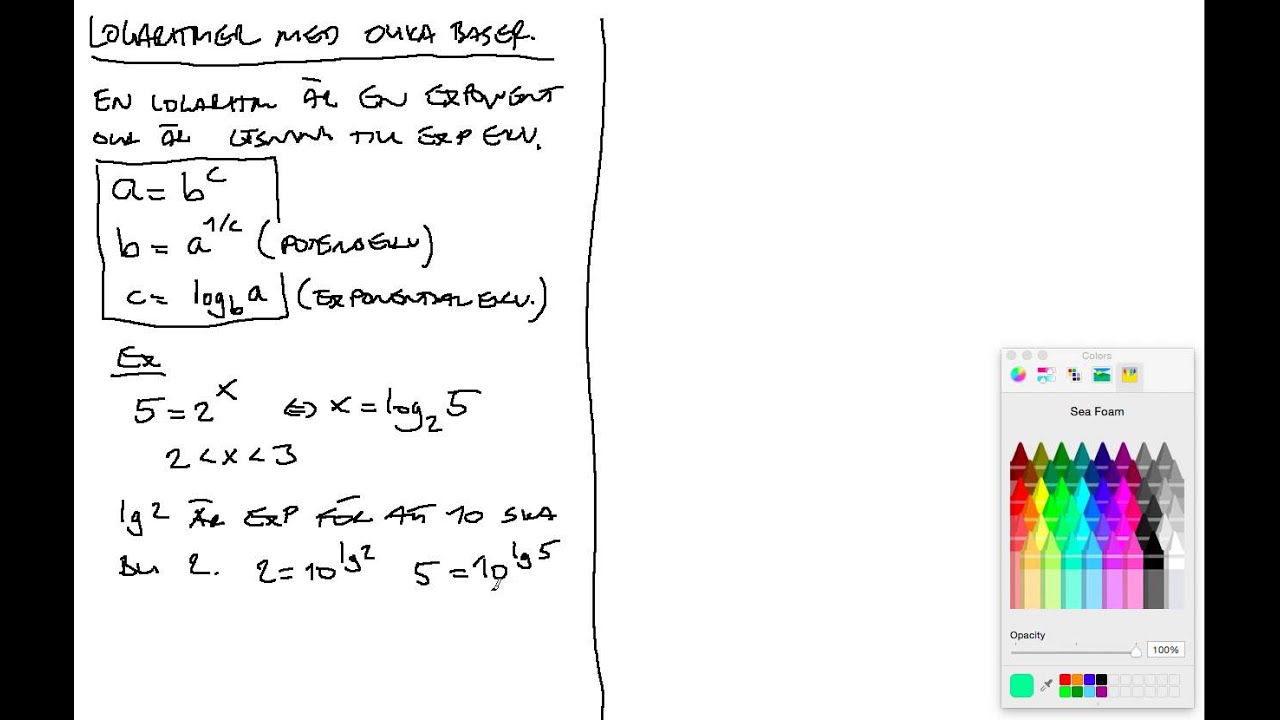 LOGARITMER MED OLIKA BASER.
EN LOGARITM ÄR EN EXPONENT
OCH ÄR LÖSNING TILL EXP EKV.
a = b^c
b = a^1/c (POTENSEKV)
c = log_b a (EXPONENTIALEKV.)
Ex
5 = 2^x ⇔ x = log_2 5
2 < x < 3
lg 2 ÄR EXP FÖR ATT 10 SKA
BLI 2. 2 = 10^lg 2 5 = 10^lg 5
Colors
Sea Foam
Opacity
100%